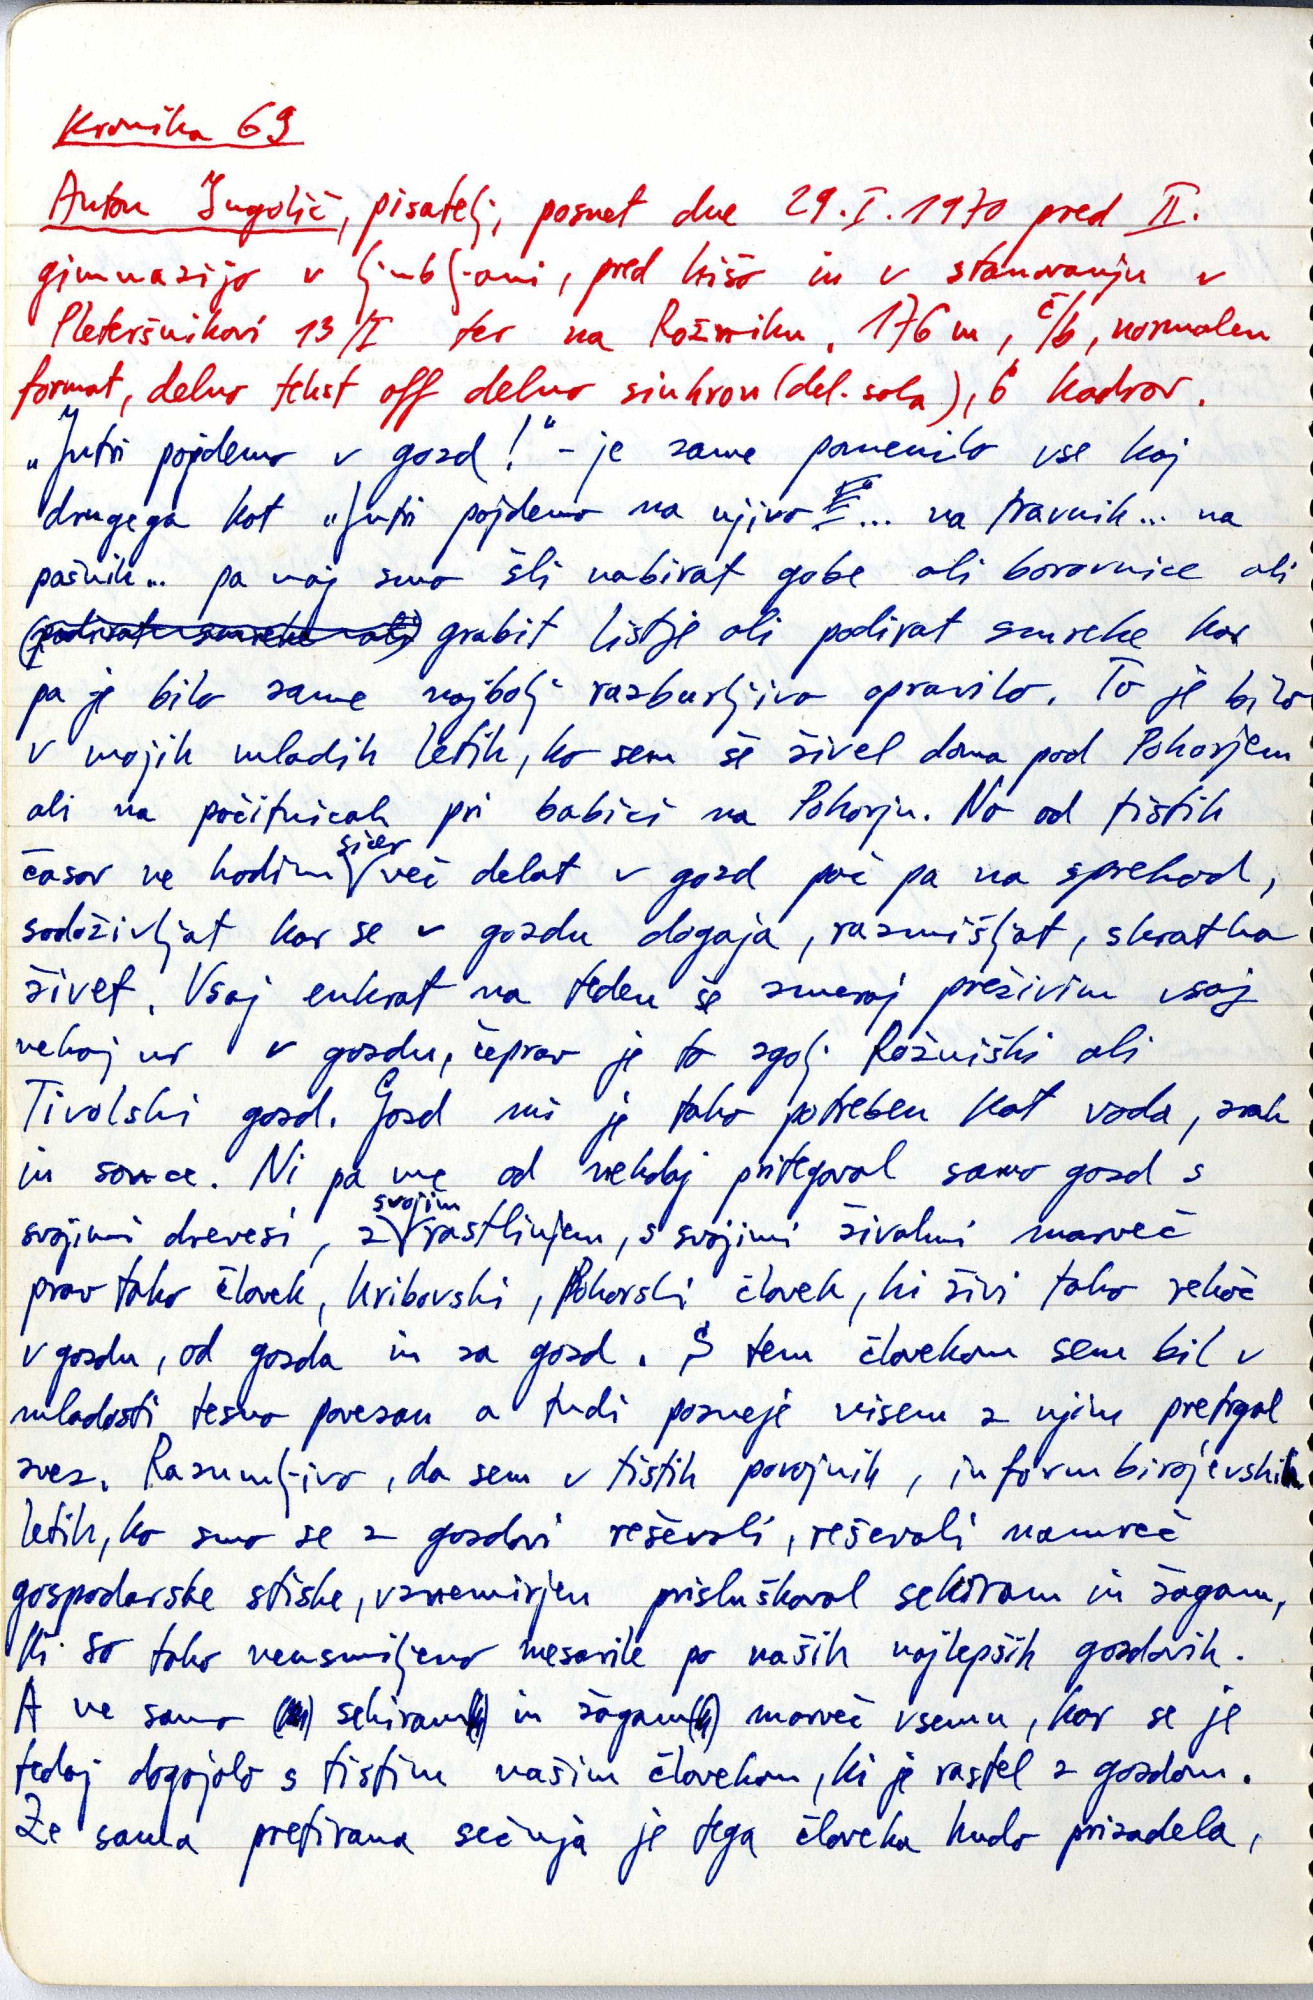 Kronika 69
Anton Ingolič, pisatelj, posnet dne 29.I.1970 pred II.
gimnazijo v Ljubljani, pred hišo in v stanovanju v
Pleteršnikovi 13/I ter na Rožniku. 176 m, č/b, normalen
format, delno tekst off delno sinhron (del. sola), 6 kadrov.
"Jutri pojdemo v gozd!" - je zame pomenilo vse kaj
drugega kot "Jutri pojdemo na njivo ... na travnik... na
pašnik... pa naj smo šli nabirat gobe ali borovnice ali
(podirat smreke ali) grabit listje ali podirat smreke kar
pa je bilo zame najbolj razburljivo opravilo. To je bilo
v mojih mladih letih, ko sem še živel doma pod Pohorjem
ali na počitnicah pri babici na Pohorju. No od tistih
časov ne hodim sicer več delat v gozd poč pa na sprehod,
sodoživljat kar se v gozdu dogaja, razmišljat, skratka
živet. Vsaj enkrat na teden še zmeraj preživim vsaj
nekaj ur v gozdu, čeprav je to zgolj Rožniški ali
Tivolski gozd. Gozd mi je tako potreben kot voda, zrak
in sonce. Ni pa me od nekdaj pritegoval samo gozd s
svojimi drevesi, z svojim rastlinjem, s svojimi živalmi marveč
prav tako človek, hribovski, Pohorski človek, ki živi tako rekoč
v gozdu, od gozda in za gozd. S tem človekom sem bil v
mladosti tesno povezan a tudi pozneje nisem z njim pretrgal
zvez. Razumljivo, da sem v tistih povojnih, informbirojevskih
letih, ko smo se z gozdovi reševali, reševali namreč
gospodarske stiske, vznemirjen prisluškoval sekiram in žagam,
ki so tako neusmiljeno mesarile po naših najlepših gozdovih.
A ne samo sekiram in žagam marveč vsemu, kar se je
tedaj dogajalo s tistim našim človekom, ki je rastel z gozdom.
Že sama pretirana sečnja je tega človeka hudo prizadela,